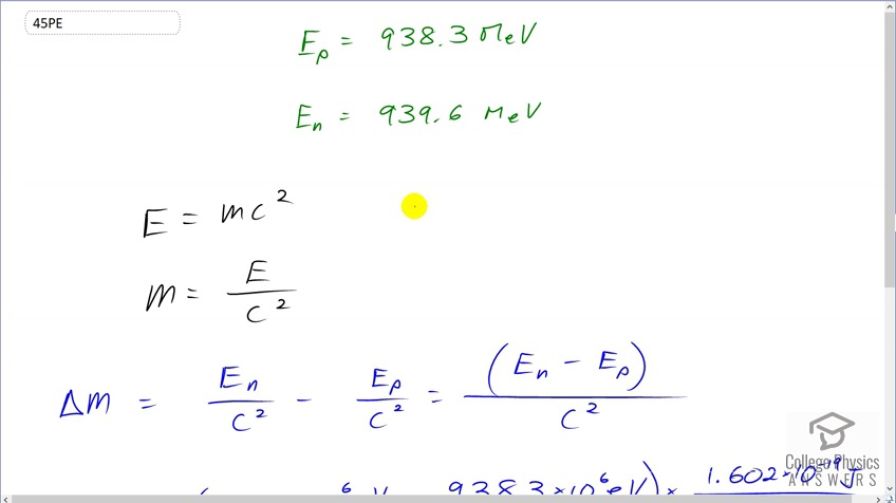 45PE
E_p = 938.3 MeV
E_n = 939.6 MeV
E = mc²
m = E / c²
Δm = E_n / c² - E_p / c² = (E_n - E_p) / c²
938.3 × 10⁶ eV) × 1.602 × 10⁻¹⁹ J
College Physics
ANSWERS